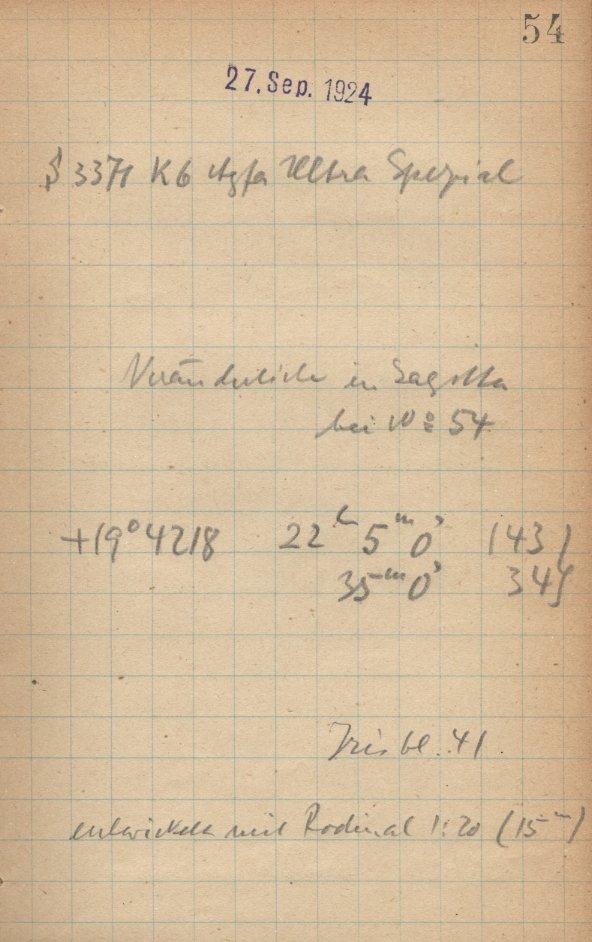 54
27. Sep. 1924
S 3371 K6 Agfa Ultra Spezial
Veränderliche in Sagitta
bei № 54
+19° 4218 22ʰ 5ᵐ 0ˢ 143
35ᵐ 0ˢ 345
Irisbl. 41
entwickelt mit Rodinal 1:20 (15ᵐ)